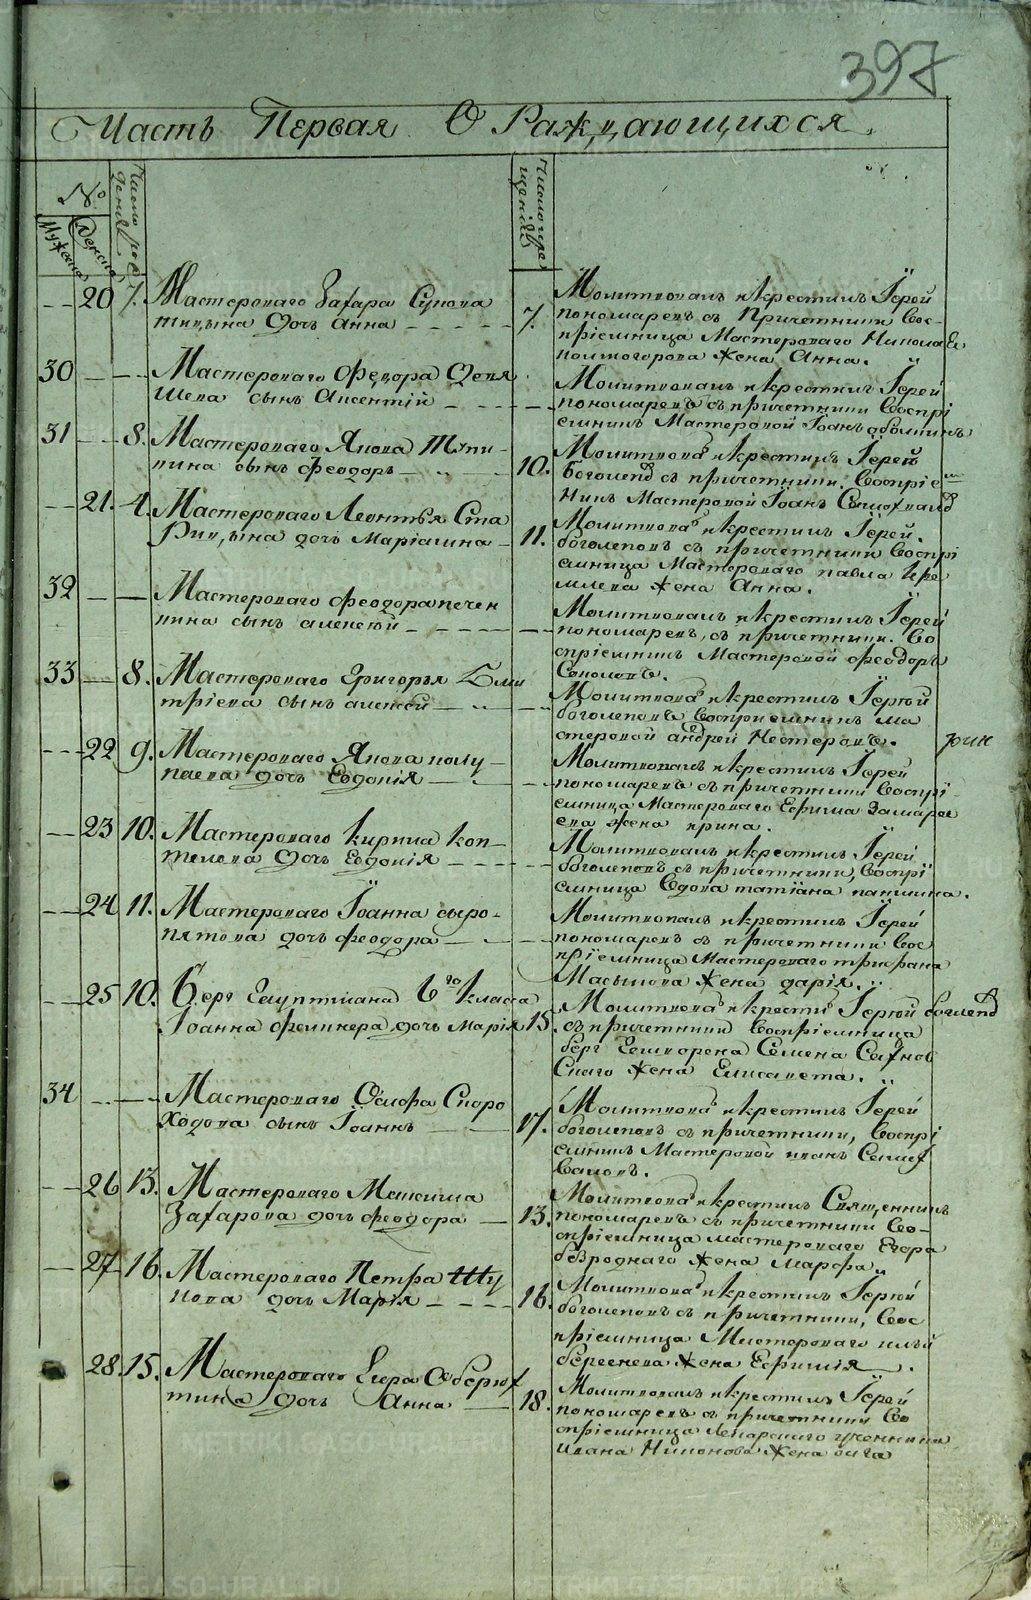 397
Часть Первая О Раждающихся.
№
Мужска
Женска
Число рож
дения
Число кре
щения
20 7. Мастероваго Захара Сунова
тицына дочь Анна 7.
Молитвовалъ и крестилъ Іерей
пономаревъ съ Причетники Вос-
пріемница Мастероваго Николая
полтогорова жена Анна.
30 Мастероваго Федора Девя
шева сынъ Авсентій
Молитвовалъ и крестилъ Іерей
пономаревъ съ причетники Воспрі
емникъ Мастеровой Іоанъ оболкинъ
31 8. Мастероваго Якова Тупи-
кина сынъ Феодоръ 10.
Молитвова и крестилъ Іерей
Боголепо съ причетники. Воспріе
никъ Мастеровой Іоанъ
21. 4. Мастероваго Леонтья Ста
рицына дочь Маріамна 11.
Молитвова и крестилъ Іерей.
боголеповъ съ причетники Воспрі
емница Мастероваго павла Ере
меева жена Анна.
32 Мастероваго Феодора печен
кина сынъ алексей
Молитвовалъ и крестилъ Іерей
пономаревъ, съ причетники. Во
спріемникъ Мастеровой Феодоръ
Соколовъ.
33 8. Мастероваго Григорья Дми
тріева сынъ алексей
Молитвова и крестилъ Іерей
боголеповъ Воспріемникъ ма
стеровой андрей Нестеровъ.
22 9. Мастероваго Якова полу-
паева дочь Евдокія
Молитвовалъ и крестилъ Іерей
пономаревъ съ причетники Воспрі-
емница Мастероваго Ефима Замарае
ева жена ирина.
23 10. Мастероваго Кирила Коп-
телова дочь Евдокія
Молитвовалъ и крестилъ Іерей
боголеповъ съ причетники, Воспрі
емница Вдова татіана панкина.
24 11. Мастероваго Іоанна сыро-
пятова дочь феодора
Молитвовалъ и крестилъ Іерей
пономаревъ съ причетники Вос
пріемница Мастероваго трифана
Масылова жена дарія.
25 10. Берг Гауптмана 6го Класса
Іоанна фелкнера дочь Марія 15.
Молитвова и крести Іерей боголепо
съ причетники Воспріемница
берг Гешворена Семена Сахнов
Скаго жена Елисавета.
34 Мастероваго Осифа Скоро
Ходова сынъ Іоаннъ 17.
Молитвова и крестилъ Іерей
боголеповъ съ причетники, Воспрі
емникъ Мастеровой иванъ
Валовъ.
26 13. Мастероваго Максима
Захарова дочь феодора 13.
Молитвова и крестилъ Священникъ
пономаревъ съ причетники Во-
спріемница мастероваго Егора
безроднаго жена Марфа.
27 16. Мастероваго Петра Шу
кова дочь Марія 16.
Молитвова и крестилъ Іерей
боголеповъ съ причетники, Вос
пріемница Мастероваго ильи
береснева жена Ефимія.
28 15. Мастероваго Егора Обберюх
тина дочь Анна 18.
Молитвовалъ и крестилъ Іерей
пономаревъ съ причетники Во
спріемница Лекарскаго ученика
Ивана Никонова жена олга
METRIKI.GASO-URAL.RU